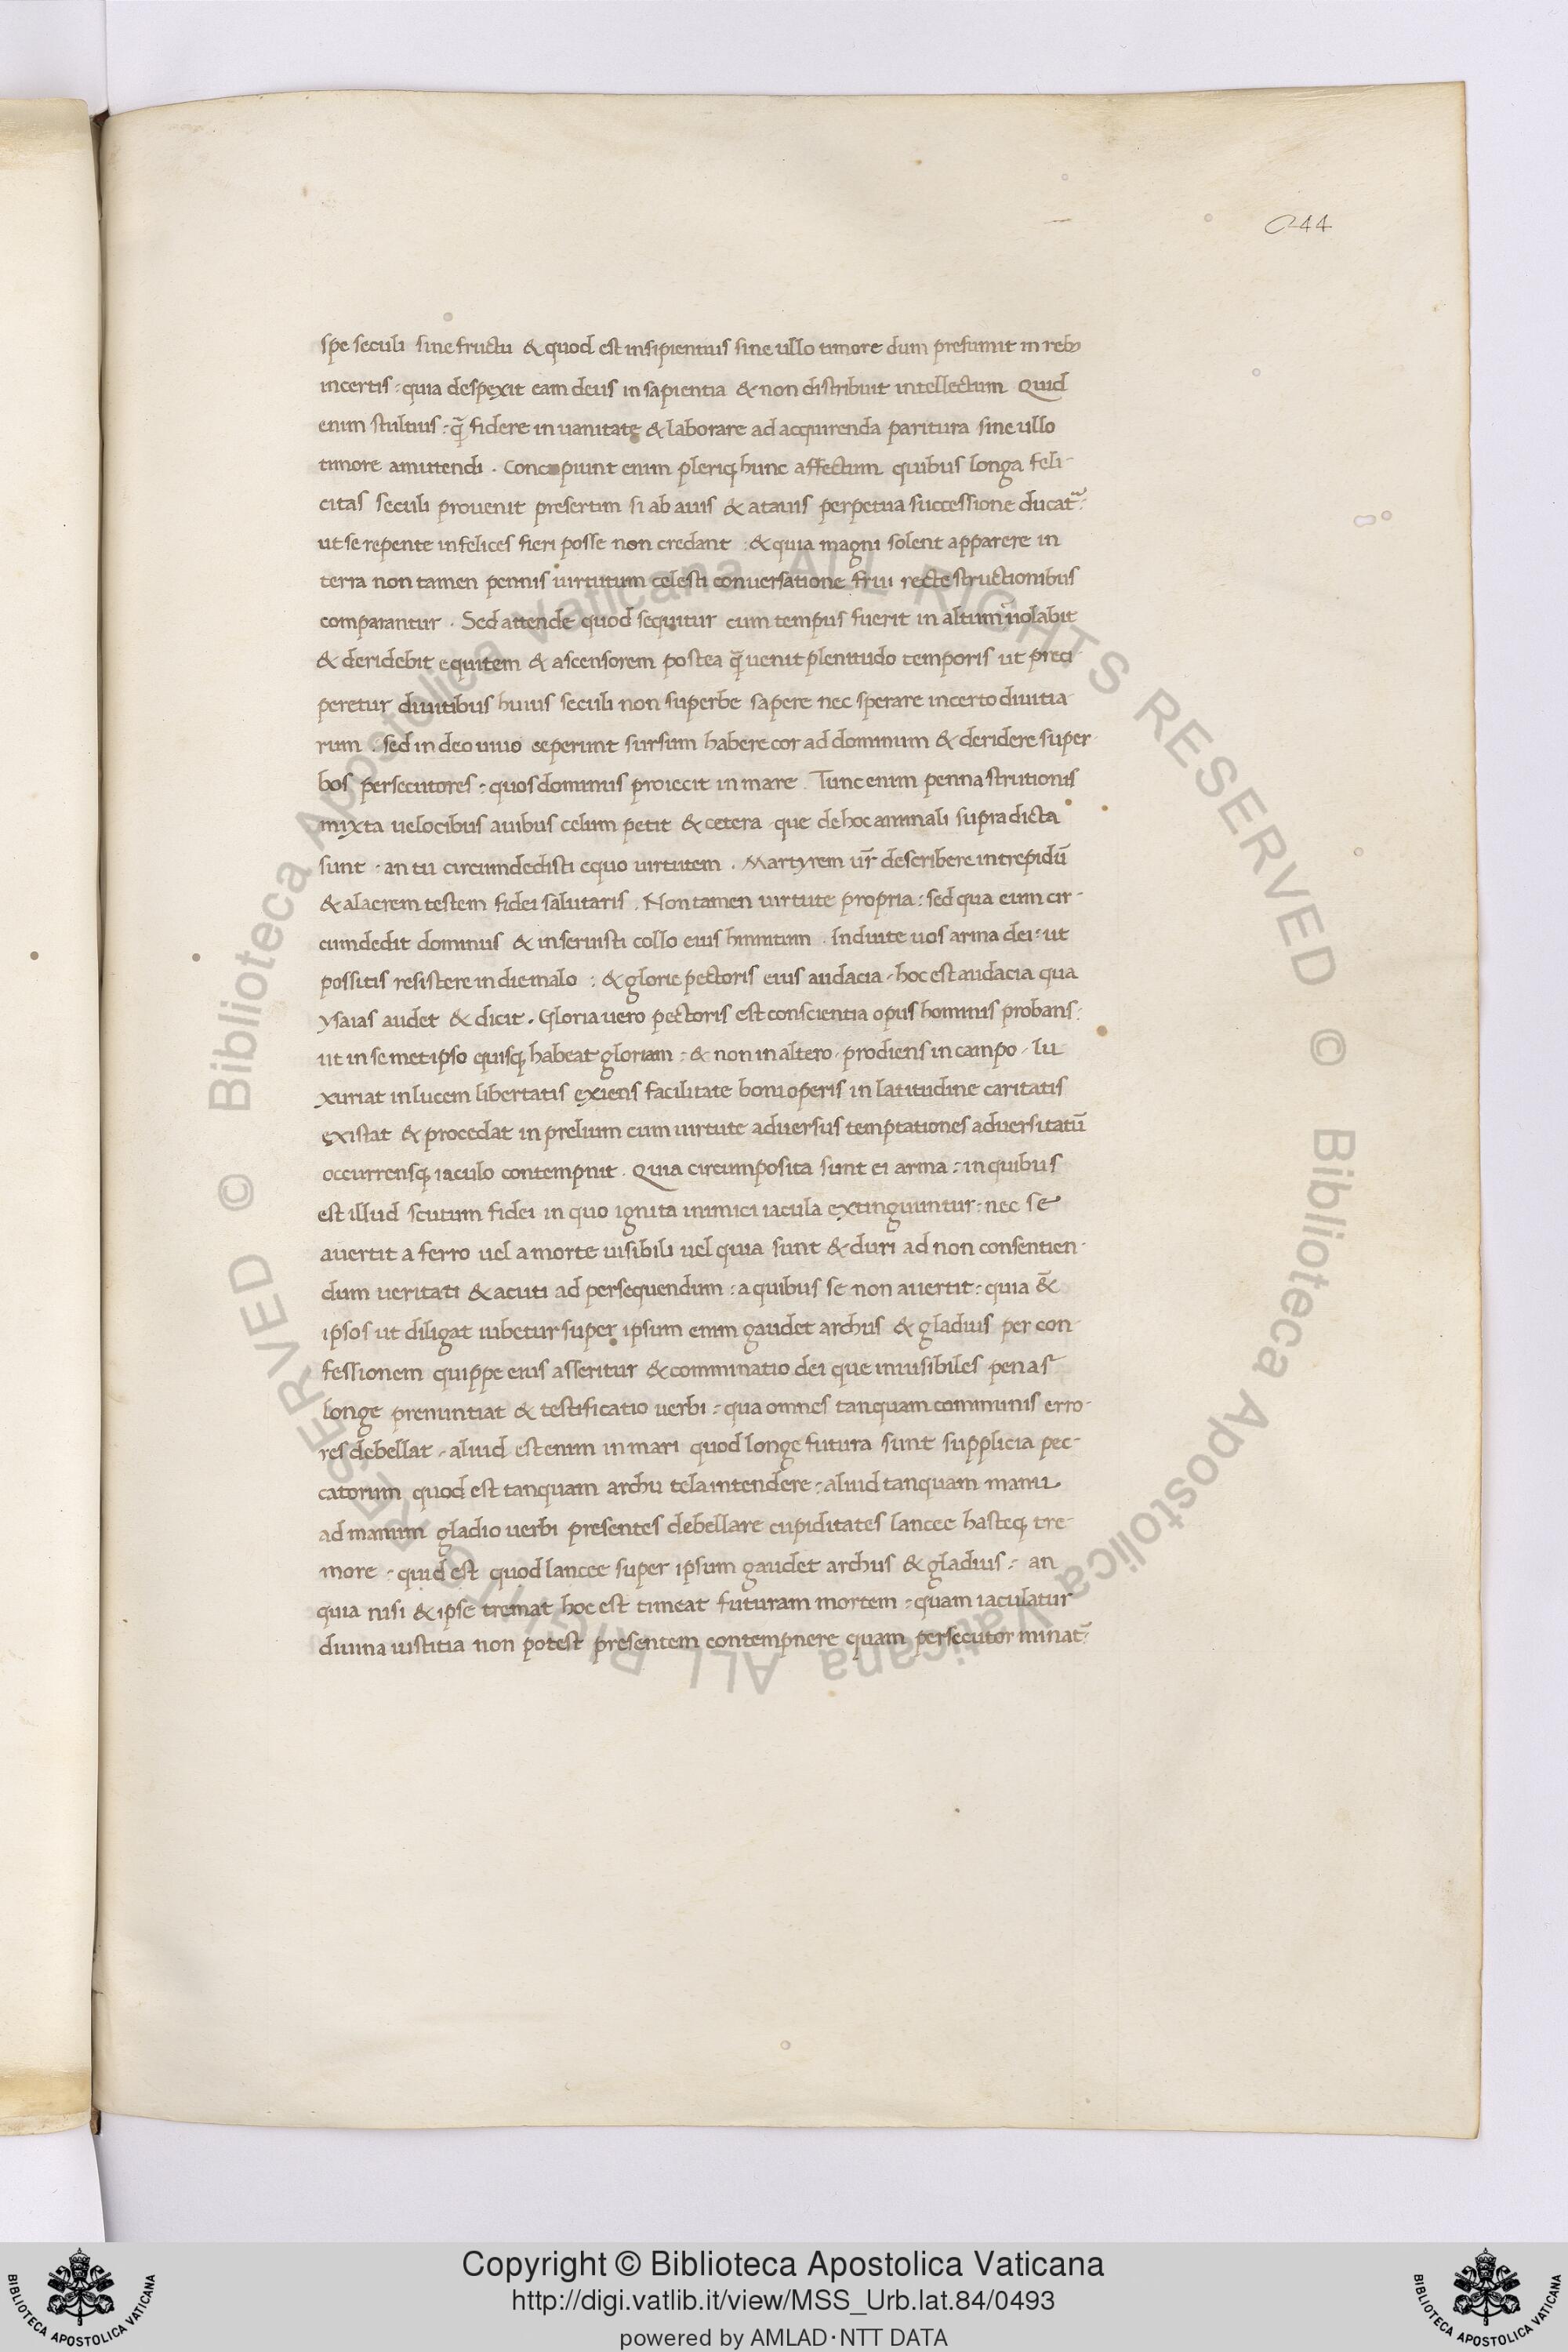 244
spe seculi sine fructu & quod est insipientius sine ullo timore dum presumit in rebꝫ
incertis : quia despexit eam deus in sapientia & non distribuit intellectum Quid
enim stultius : q̄ fidere in uanitate & laborare ad acquirenda paritura sine ullo
timore amittendi . Concipiunt enim pleriqꝫ hunc affectum quibus longa feli-
citas seculi prouenit presertim si ab auis & atauis perpetua successione ducat᷑ :
ut se repente infelices fieri posse non credant : & quia magni solent apparere in
terra non tamen pennis uirtutum celesti conuersatione frui recte structionibus
comparantur . Sed attende quod sequitur cum tempus fuerit in altum uolabit
& deridebit equitem & ascensorem postea q̄ uenit plenitudo temporis ut preci-
peretur diuitibus huius seculi non superbe sapere nec sperare incerto diuitia-
rum . sed in deo uiuo ceperunt sursum habere cor ad dominum & deridere super-
bos persecutores : quos dominus proiecit in mare . Tunc enim penna strutionis
mixta uelocibus auibus celum petit & cetera que de hoc animali supra dicta
sunt . an tu circumdedisti equo uirtutem . Martyrem ur̄ describere intrepidū
& alacrem testem fidei salutaris . Non tamen uirtute propria : sed qua eum cir-
cumdedit dominus & inseruisti collo eius hinnitum . Induite uos arma dei : ut
possitis resistere in die malo : & glorie pectoris eius audacia . hoc est audacia qua
ysaias audet & dicit . Gloria uero pectoris est conscientia opus hominis probans :
ut in semetipso quisqꝫ habeat gloriam : & non in altero . prodiens in campo . lu-
xuriat in lucem libertatis exiens facilitate boni operis in latitudine caritatis
existat & procedat in prelium cum uirtute aduersus temptationes aduersitatū
occurrensqꝫ iaculo contempnit . Quia circumposita sunt ei arma : in quibus
est illud scutum fidei in quo ignita inimici iacula extinguuntur : nec se
auertit a ferro uel a morte uisibili uel quia sunt & duri ad non consentien-
dum ueritati & acuti ad persequendum : a quibus se non auertit : quia &̄
ipsos ut diligat iubetur super ipsum enim gaudet archus & gladius per con-
fessionem quippe eius asseritur & comminatio dei que inuisibiles penas
longe prenuntiat & testificatio uerbi : qua omnes tanquam communis erro-
res debellat . aliud est enim in mari quod longe futura sunt supplicia pec-
catorum quod est tanquam archu tela intendere : aliud tanquam manu
ad manum gladio uerbi presentes debellare cupiditates lancee hasteqꝫ tre-
more : quid est quod lancee super ipsum gaudet archus & gladius : an
quia nisi & ipse tremat hoc est timeat futuram mortem : quam iaculatur
diuina iustitia non potest presentem contempnere quam persecutor minat᷑
Copyright © Biblioteca Apostolica Vaticana
http://digi.vatlib.it/view/MSS_Urb.lat.84/0493
powered by AMLAD·NTT DATA
BIBLIOTECA APOSTOLICA VATICANA
BIBLIOTECA APOSTOLICA VATICANA
© Biblioteca Apostolica Vaticana ALL RIGHTS RESERVED © Biblioteca Apostolica Vaticana ALL RIGHTS RESERVED